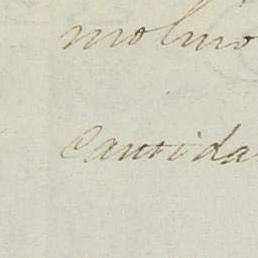 molino
cauvida